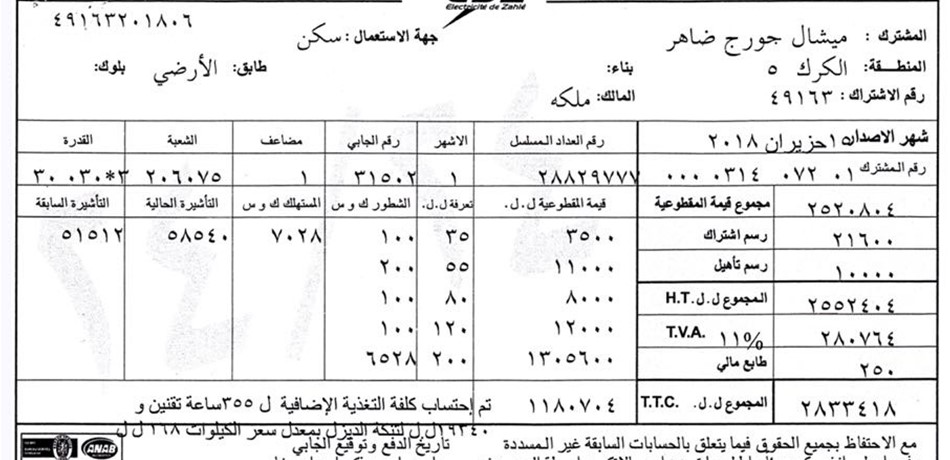 ٤٩١٦٣٢٠١٨٠٦
Electricité de Zahlé
المشترك : ميشال جورج ضاهر
جهة الاستعمال : سكن
المنطقة: الكرك ٥
بناء:
طابق: الأرضي
بلوك:
رقم الاشتراك : ٤٩١٦٣
المالك: ملكه
شهر الاصدار ١٥حزيران ٢٠١٨
رقم المشترك ٠١ ٠٧٢ ٠٣١٤ ٠٠٠
رقم العداد المسلسل الاشهر رقم الجابي مضاعف الشعبة القدرة
٢٨٨٢٩٧٧٧ ١ ٣١٥٠٢ ١ ٢٠٦٠٧٥ ٣*٠٣٠ ٣٠
قيمة المقطوعية ل.ل. تعرفة ل.ل. الشطور ك و س المستهلك ك و س التأشيرة الحالية التأشيرة السابقة
٣٥٠٠ ٣٥ ١٠٠ ٧٠٢٨ ٥٨٥٤٠ ٥١٥١٢
١١٠٠٠ ٥٥ ٢٠٠
٨٠٠٠ ٨٠ ١٠٠
١٢٠٠٠ ١٢٠ ١٠٠
١٣٠٥٦٠٠ ٢٠٠ ٦٥٢٨
مجموع قيمة المقطوعية ٢٥٢٠٨٠٤
رسم اشتراك ٢١٦٠٠
رسم تأهيل ١٠٠٠٠
المجموع ل.ل. H.T. ٢٥٥٢٤٠٤
T.V.A. ١١% ٢٨٠٧٦٤
طابع مالي ٢٥٠
المجموع ل.ل. T.T.C. ٢٨٣٣٤١٨
١١٨٠٧٠٤ تم إحتساب كلفة التغذية الإضافية ل ٣٥٥ساعة تقنين و
١٩٣٤٠ل ل لتنكة الديزل بمعدل سعر الكيلوات ١٦٨ ل ل
مع الاحتفاظ بجميع الحقوق فيما يتعلق بالحسابات السابقة غير المسددة
تاريخ الدفع وتوقيع الجابي
ANAB